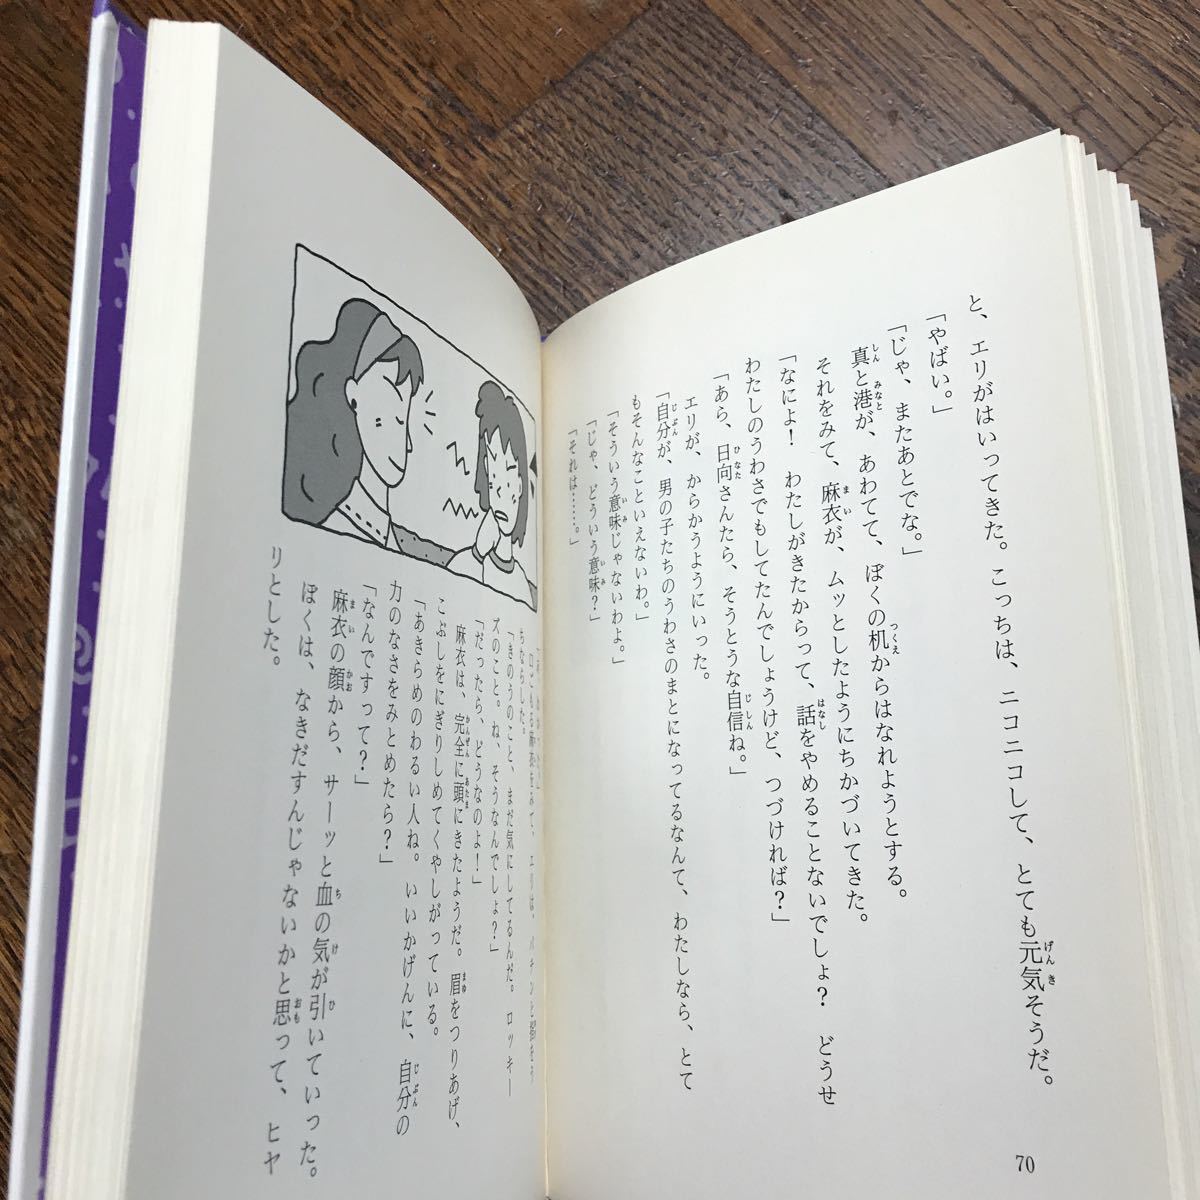 と、エリがはいってきた。こっちは、ニコニコして、とても元気そうだ。
「やばい。」
「じゃ、またあとでな。」
真と港が、あわてて、ぼくの机からはなれようとする。
それをみて、麻衣が、ムッとしたようにちかづいてきた。
「なによ！　わたしがきたからって、話をやめることないでしょ？　どうせ
わたしのうわさでもしてたんでしょうけど、つづければ？」
「あら、日向さんたら、そうとうな自信ね。」
エリが、からかうようにいった。
「自分が、男の子たちのうわさのまとになってるなんて、わたしなら、とて
もそんなこといえないわ。」
「そういう意味じゃないわよ。」
「じゃ、どういう意味？」
「それは……。」
70
口ごもる麻衣をみて、エリは、パチンと指をう
ちならした。
「きのうのこと、まだ気にしてるんだ。ロッキー
ズのこと。ね、そうなんでしょ？」
「だったら、どうなのよ！」
麻衣は、完全に頭にきたようだ。眉をつりあげ、
こぶしをにぎりしめてくやしがっている。
「あきらめのわるい人ね。いいかげんに、自分の
力のなさをみとめたら？」
「なんですって？」
麻衣の顔から、サーッと血の気が引いていった。
ぼくは、なきだすんじゃないかと思って、ヒヤ
リとした。